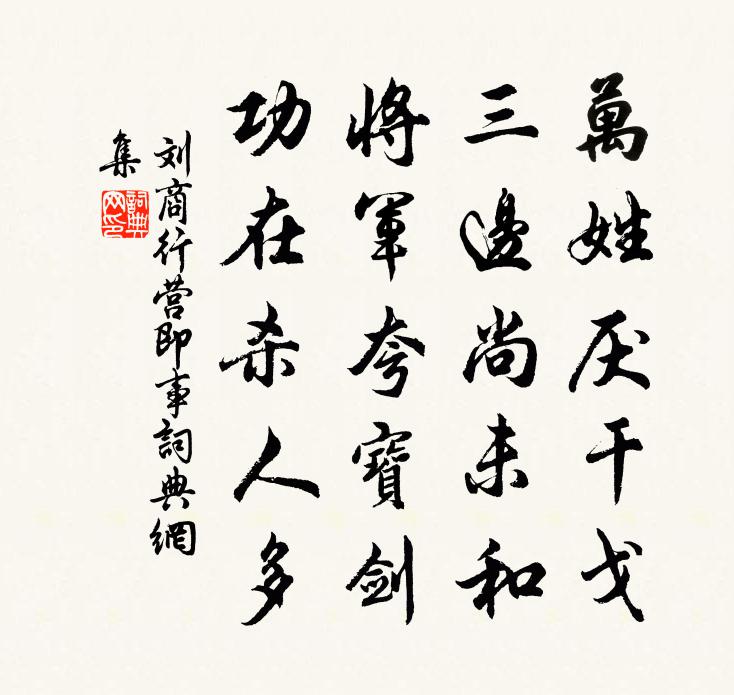 萬姓厌干戈
三邊尚未和
將軍夸寶劍
功在杀人多
刘商行营即事詞典網
集
詞典网印